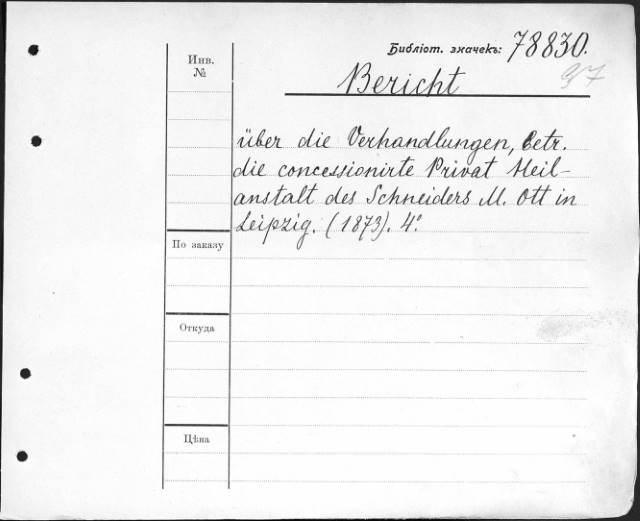 Библіот. значекъ: 78830.
97
Bericht
Инв.
№
über die Verhandlungen, betr.
die concessionirte Privat Heil-
anstalt des Schneiders M. Ott in
Leipzig. (1873). 4°.
По заказу
Откуда
Цѣна